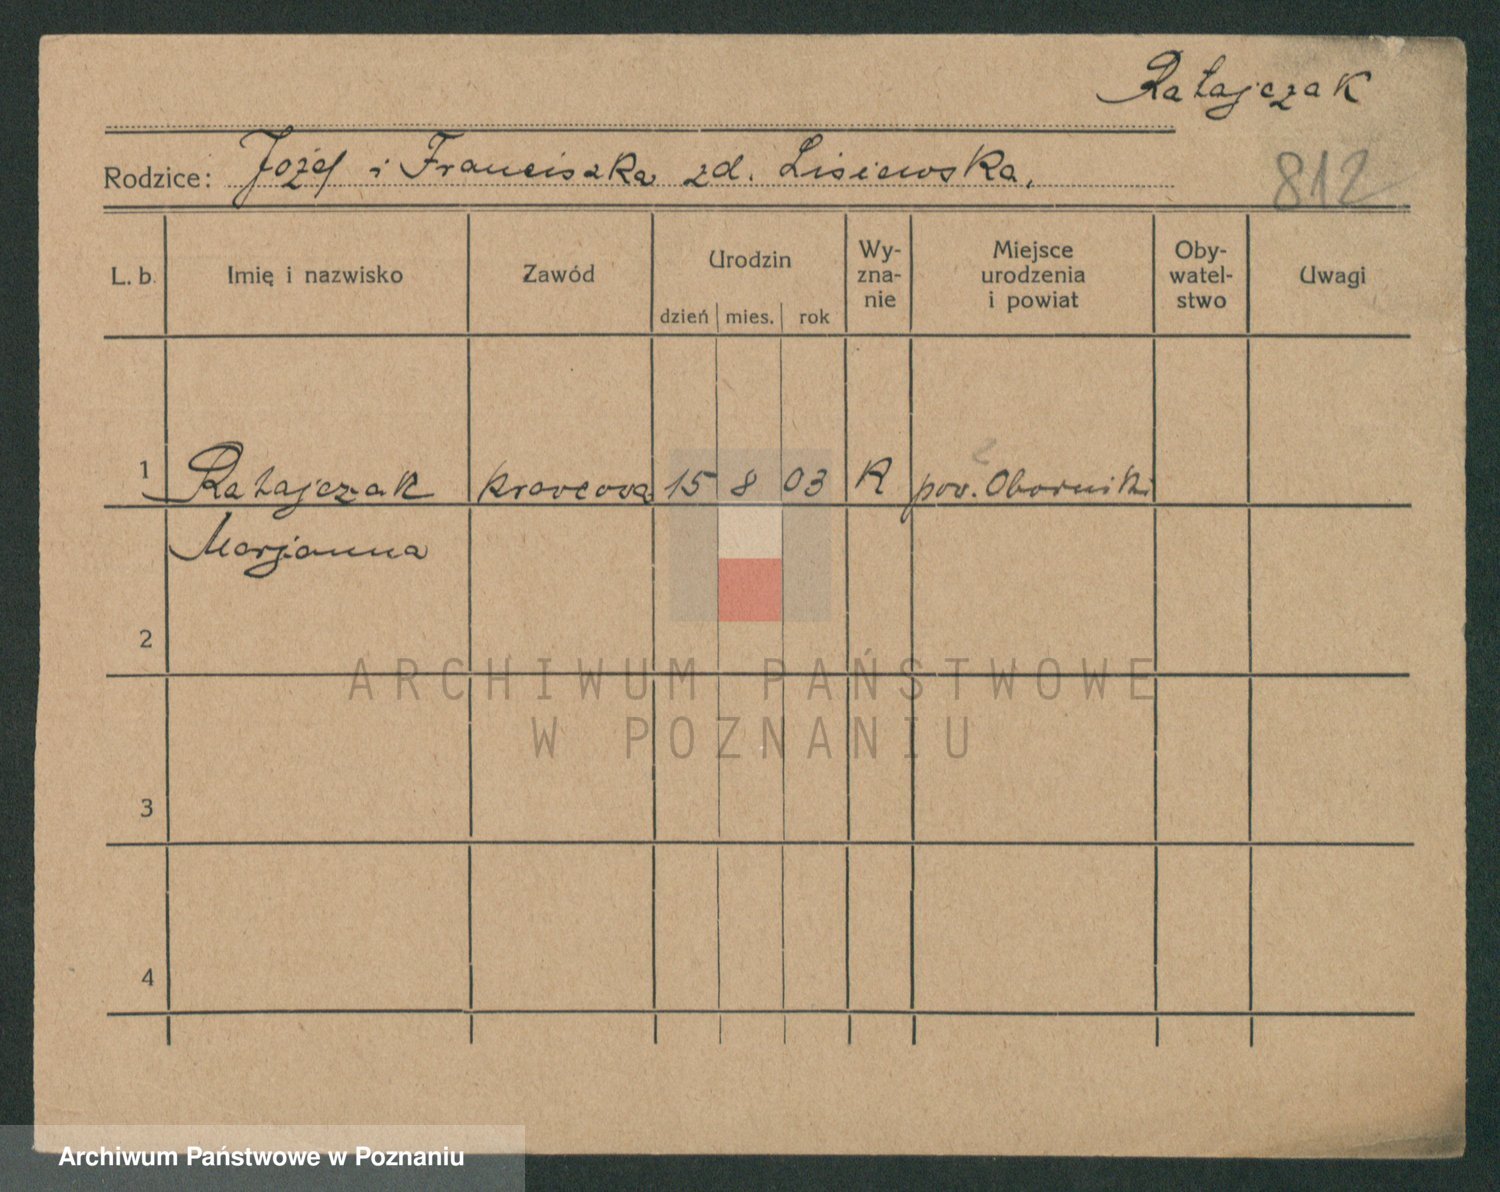 Ratajczak
Rodzice: Józef i Franciszka zd. Lisiewska.
812
L. b.
Imię i nazwisko
Zawód
Urodzin
dzień mies. rok
Wy-
zna-
nie
Miejsce
urodzenia
i powiat
Oby-
watel-
stwo
Uwagi
1 Ratajczak krawcowa 15 8 03 R pow. Oborniki
Marjanna
2
3
4
ARCHIWUM PAŃSTWOWE
W POZNANIU
Archiwum Państwowe w Poznaniu